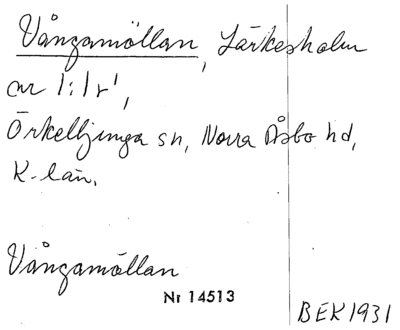 Vångamöllan, Lärkesholm
nr 1:1 r¹,
Örkelljunga sn, Norra Åsbo hd,
K-län.
Vångamöllan
Nr 14513
BEK 1931